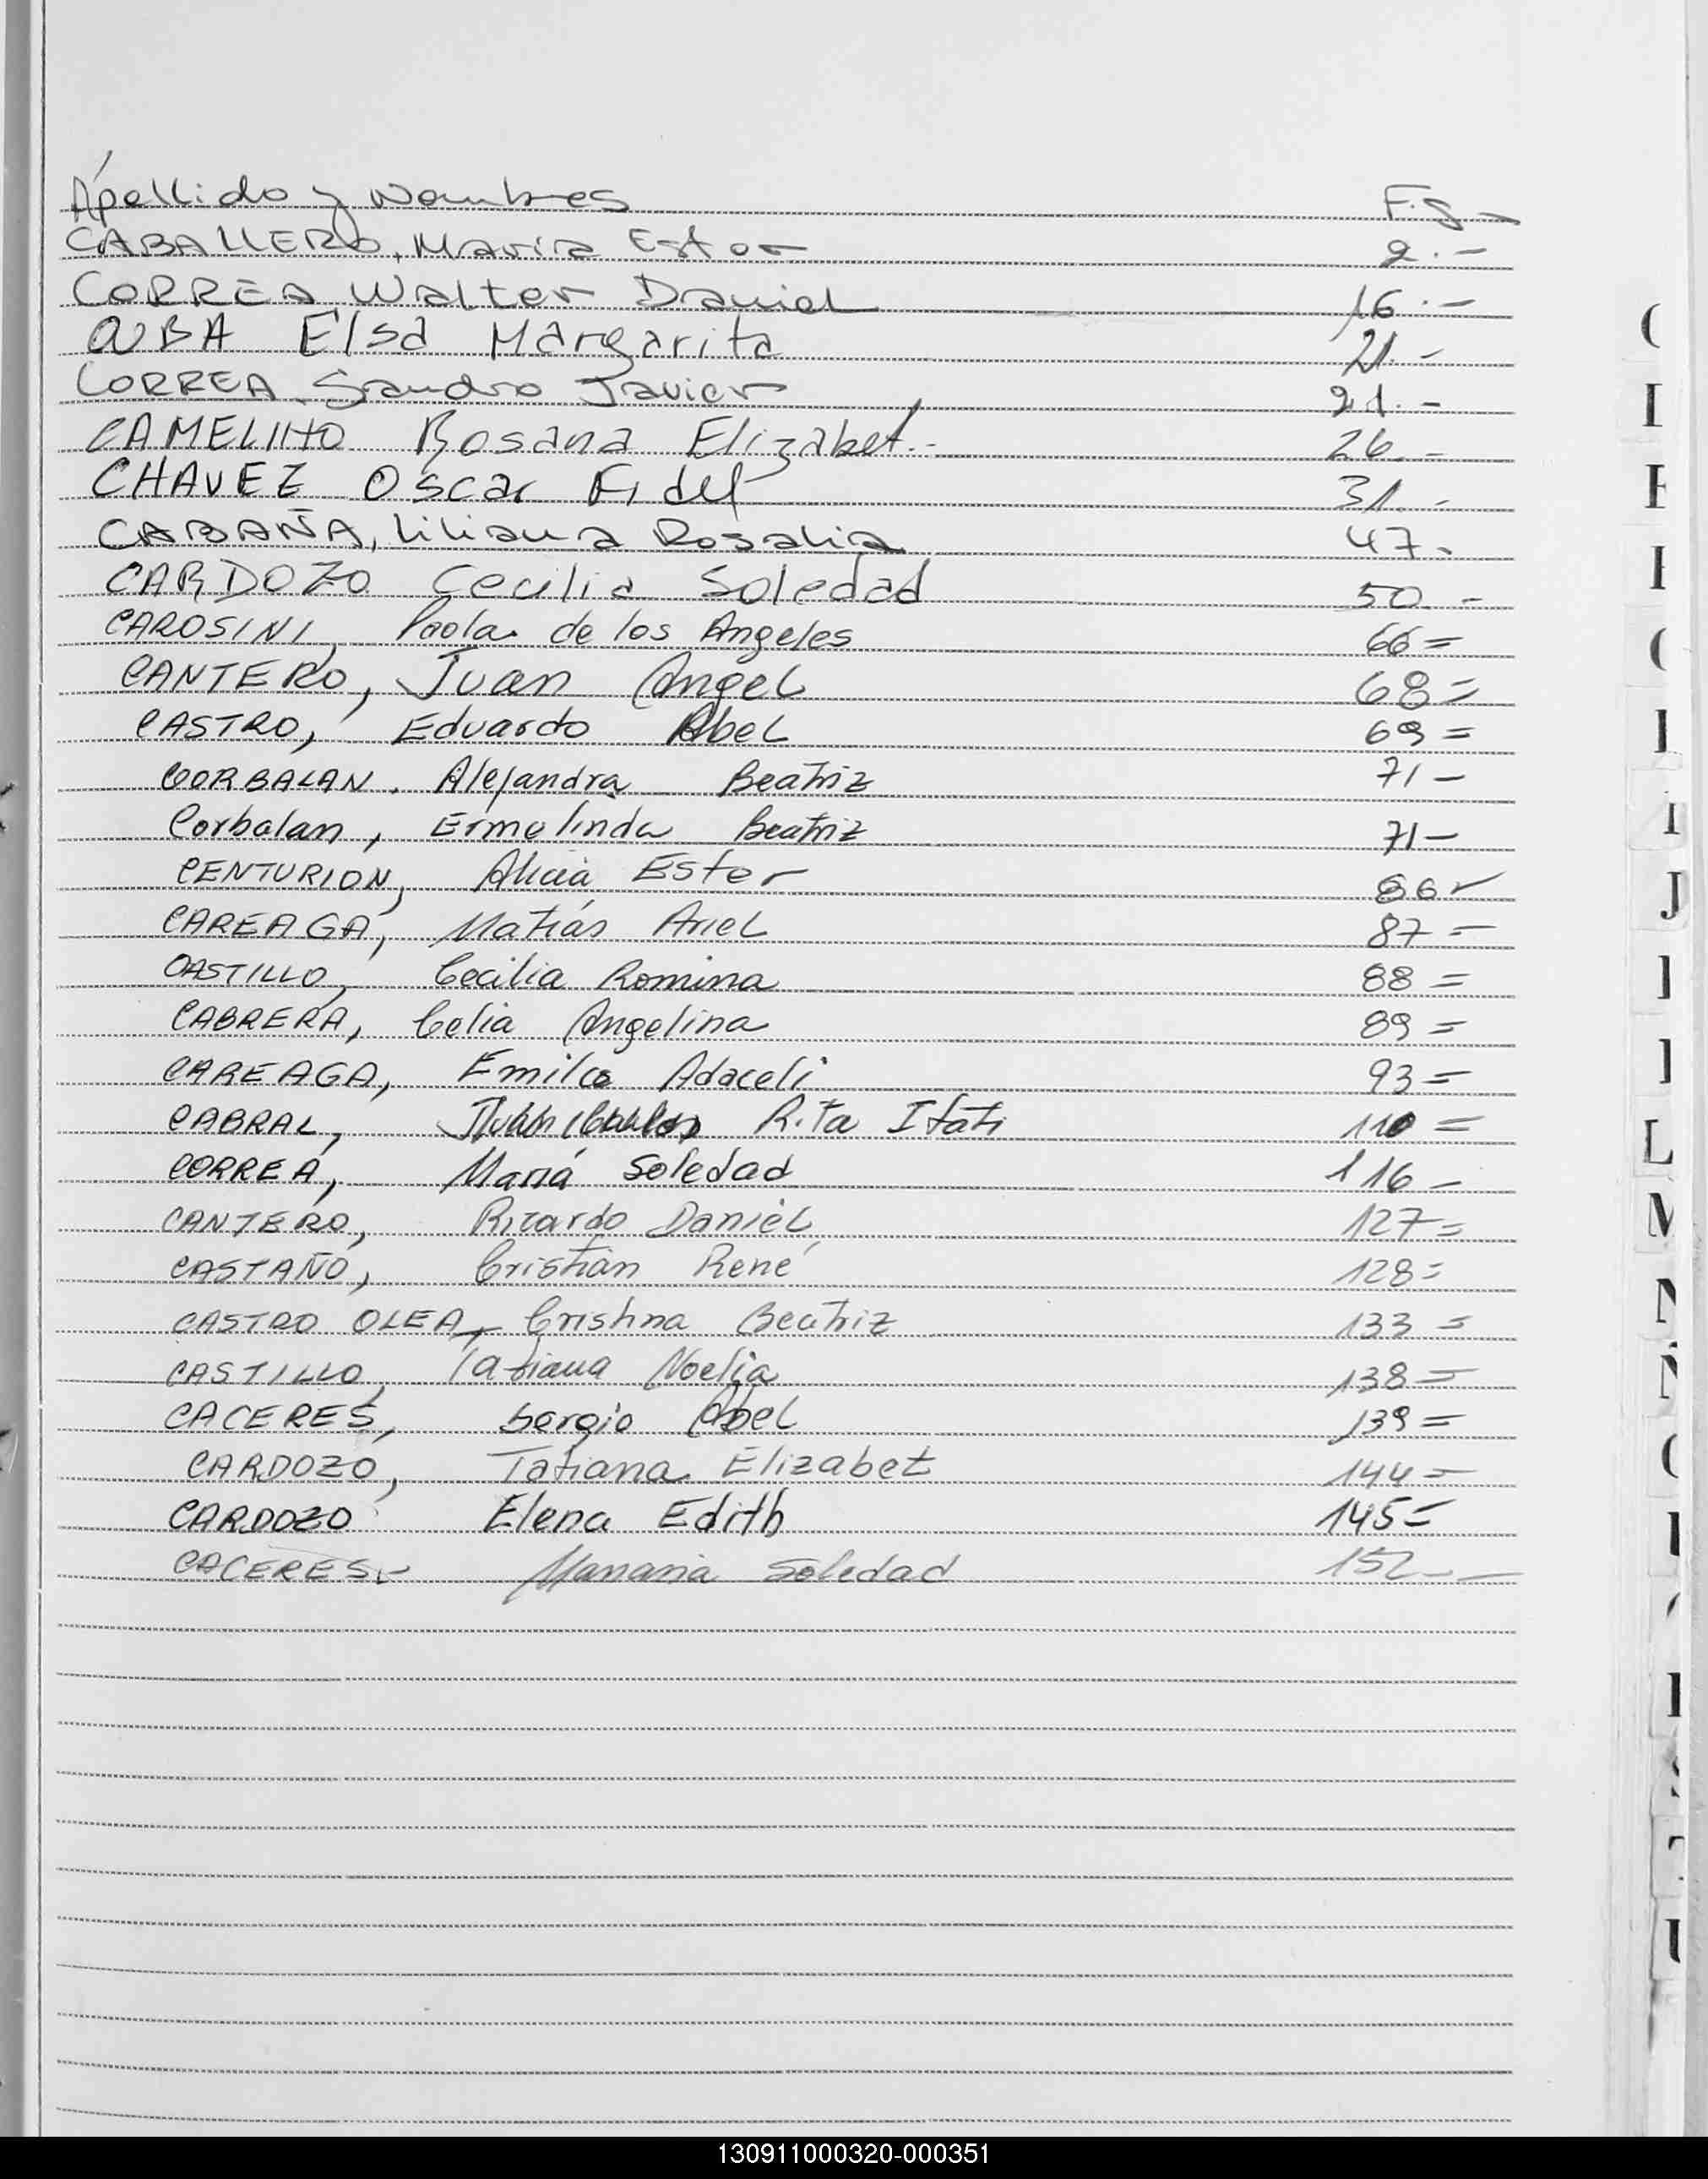 Apellido y Nombres F.s –
CABALLERO, María Ester 2.–
CORREA Walter Daniel 16.–
CUBA Elsa Margarita 21.–
CORREA Sandro Javier 21.–
CAMELINO Rosana Elizabet.- 26.–
CHAVEZ Oscar Fidel 31.–
CABAÑA, Liliana Rosalia 47.
CARDOZO Cecilia Soledad 50.–
CAROSINI, Paola de los Angeles 66=
CANTERO, Juan Angel 68=
CASTRO, Eduardo Abel 69=
CORBALAN. Alejandra Beatriz 71–
Corbalan, Ermelinda Beatriz 71–
CENTURION, Alicia Ester 86
CAREAGA, Matías Ariel 87=
CASTILLO, Cecilia Romina 88=
CABRERA, Celia Angelina 89=
CAREAGA, Emilce Adaceli 93=
CABRAL, Rita Itatí 110=
CORREA, María Soledad 116–
CANTERO, Ricardo Daniel 127=
CASTAÑO, Cristian René 128=
CASTRO OLEA, Cristina Beatriz 133=
CASTILLO, Tatiana Noelia 138=
CACERES, Sergio Abel 139=
CARDOZO, Tatiana Elizabet 144=
CARDOZO Elena Edith 145=
CACERES.- Soledad 152.–
I
J
L
M
130911000320-000351